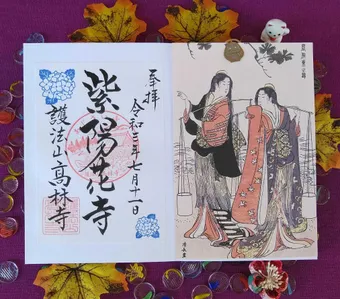 奉拝
令和三年七月十一日
紫陽花寺
護法山高林寺